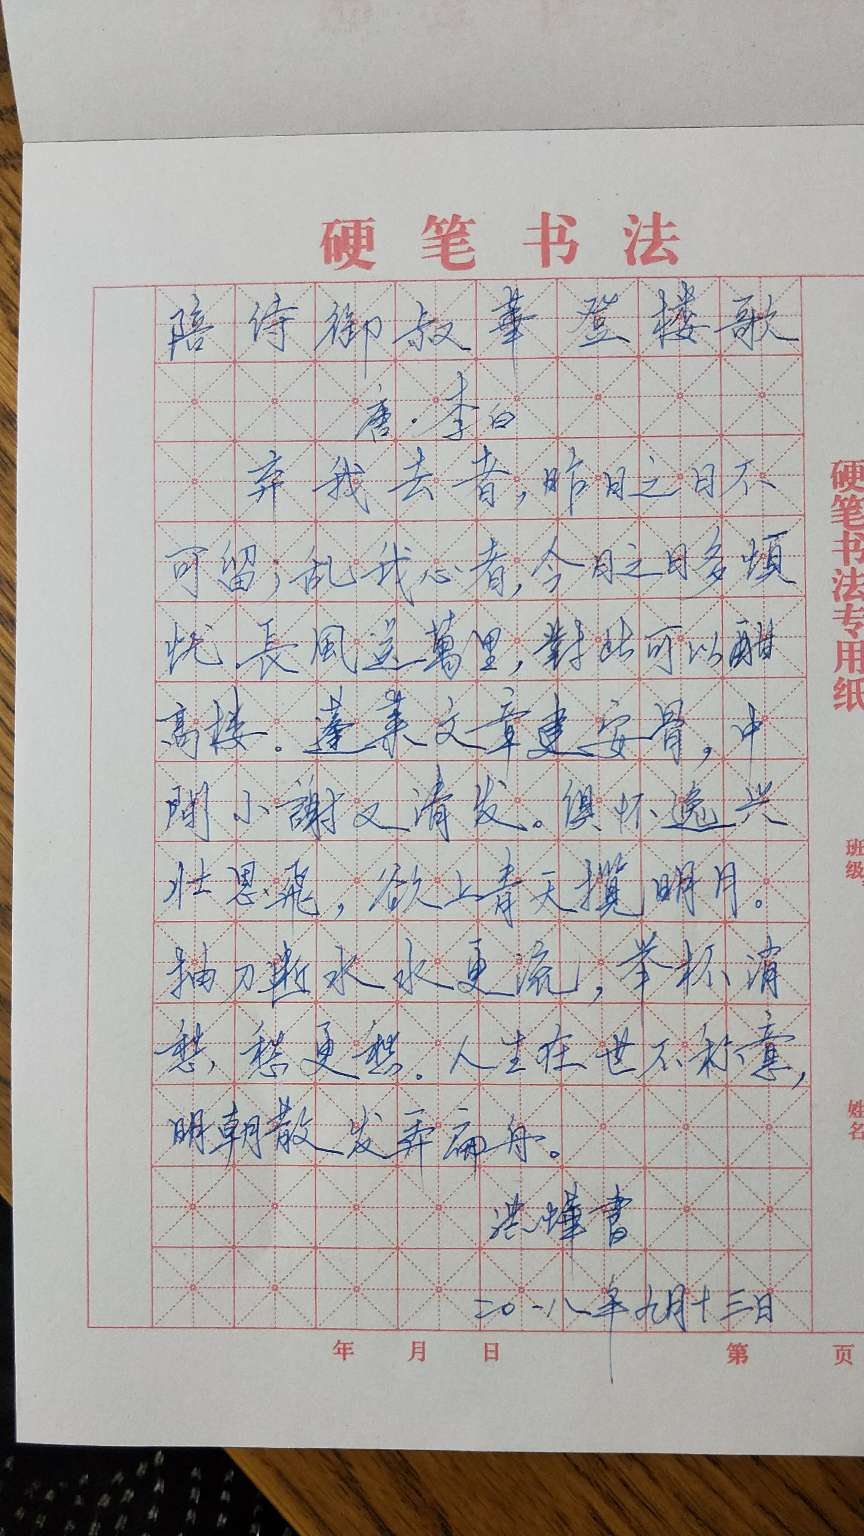 硬笔书法
陪侍御叔華登楼歌
唐·李白
弃我去者,昨日之日不
可留;乱我心者,今日之日多煩
忧.長風送萬里,對此可以酣
高楼。蓬莱文章建安骨,中
間小謝又清发。俱怀逸兴
壮思飛,欲上青天攬明月。
抽刀断水水更流,举杯消
愁,愁更愁.人生在世不称意,
明朝散发弄扁舟。
書
二〇一八年九月十三日
年 月 日 第 页
硬笔书法专用纸
班级
姓名